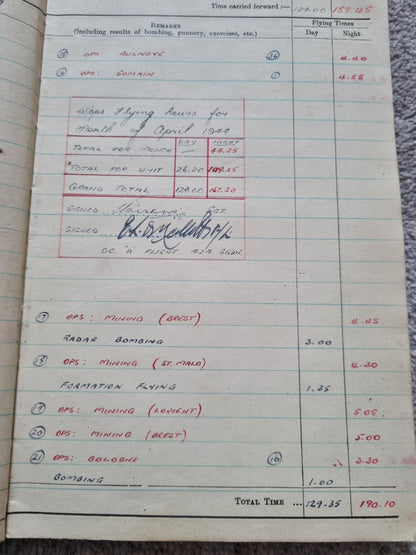 Time carried forward :— 124.00 157.45
REMARKS
(including results of bombing, gunnery, exercises, etc.)
Flying Times
Day Night
OPS: AULNOYE 4.40
⑯ OPS: SOMAIN 4.55
W/Ops Flying hours for
Month of April 1944
DAY NIGHT
TOTAL FOR MONTH — 44.25
TOTAL FOR UNIT 26.20
GRAND TOTAL 124.00 167.20
SIGNED
SIGNED F/L
O.C. "A" FLIGHT 424 SQDN.
⑰ OPS: MINING (BREST) 4.45
RADAR BOMBING 3.00
⑱ OPS: MINING (ST. MALO) 4.30
FORMATION FLYING 1.35
⑲ OPS: MINING (LORIENT) 5.05
⑳ OPS: MINING (BREST) 5.00
㉑ OPS: BOLOGNE
BOMBING 1.00
TOTAL TIME ... 129.35 190.10